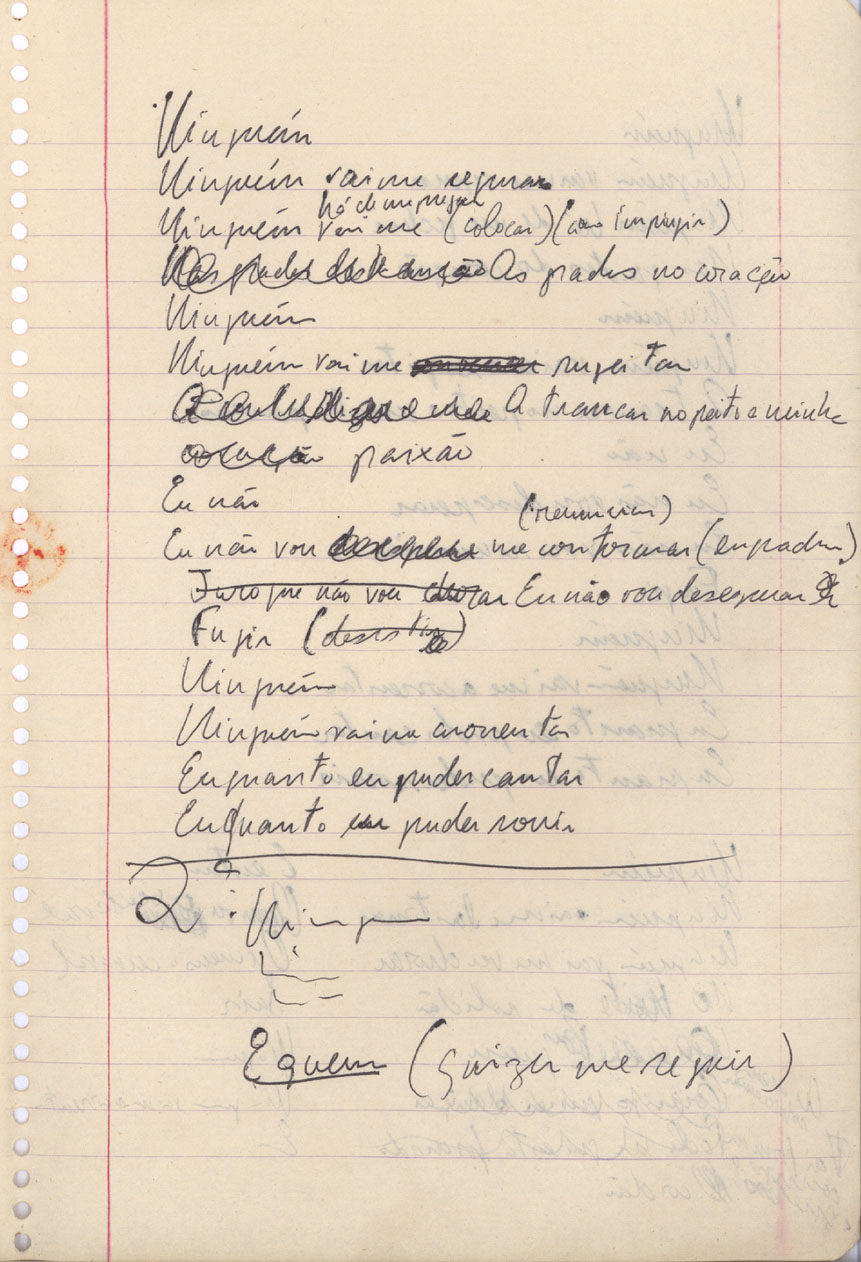 Ninguém
Ninguém vai me segurar
há de me
Ninguém vai me (colocar) (impingir)
As grades no coração
Ninguém
Ninguém vai me sujeitar
A trancar no peito a minha
paixão
Eu não
(renunciar)
Eu não vou me conformar (enquadrar)
Juro que não vou Eu não vou desesperar
Fugir (desistir)
Ninguém
Ninguém vai me acorrentar
Enquanto eu puder cantar
Enquanto eu puder sorrir
2ª
E quem (quizer me seguir)